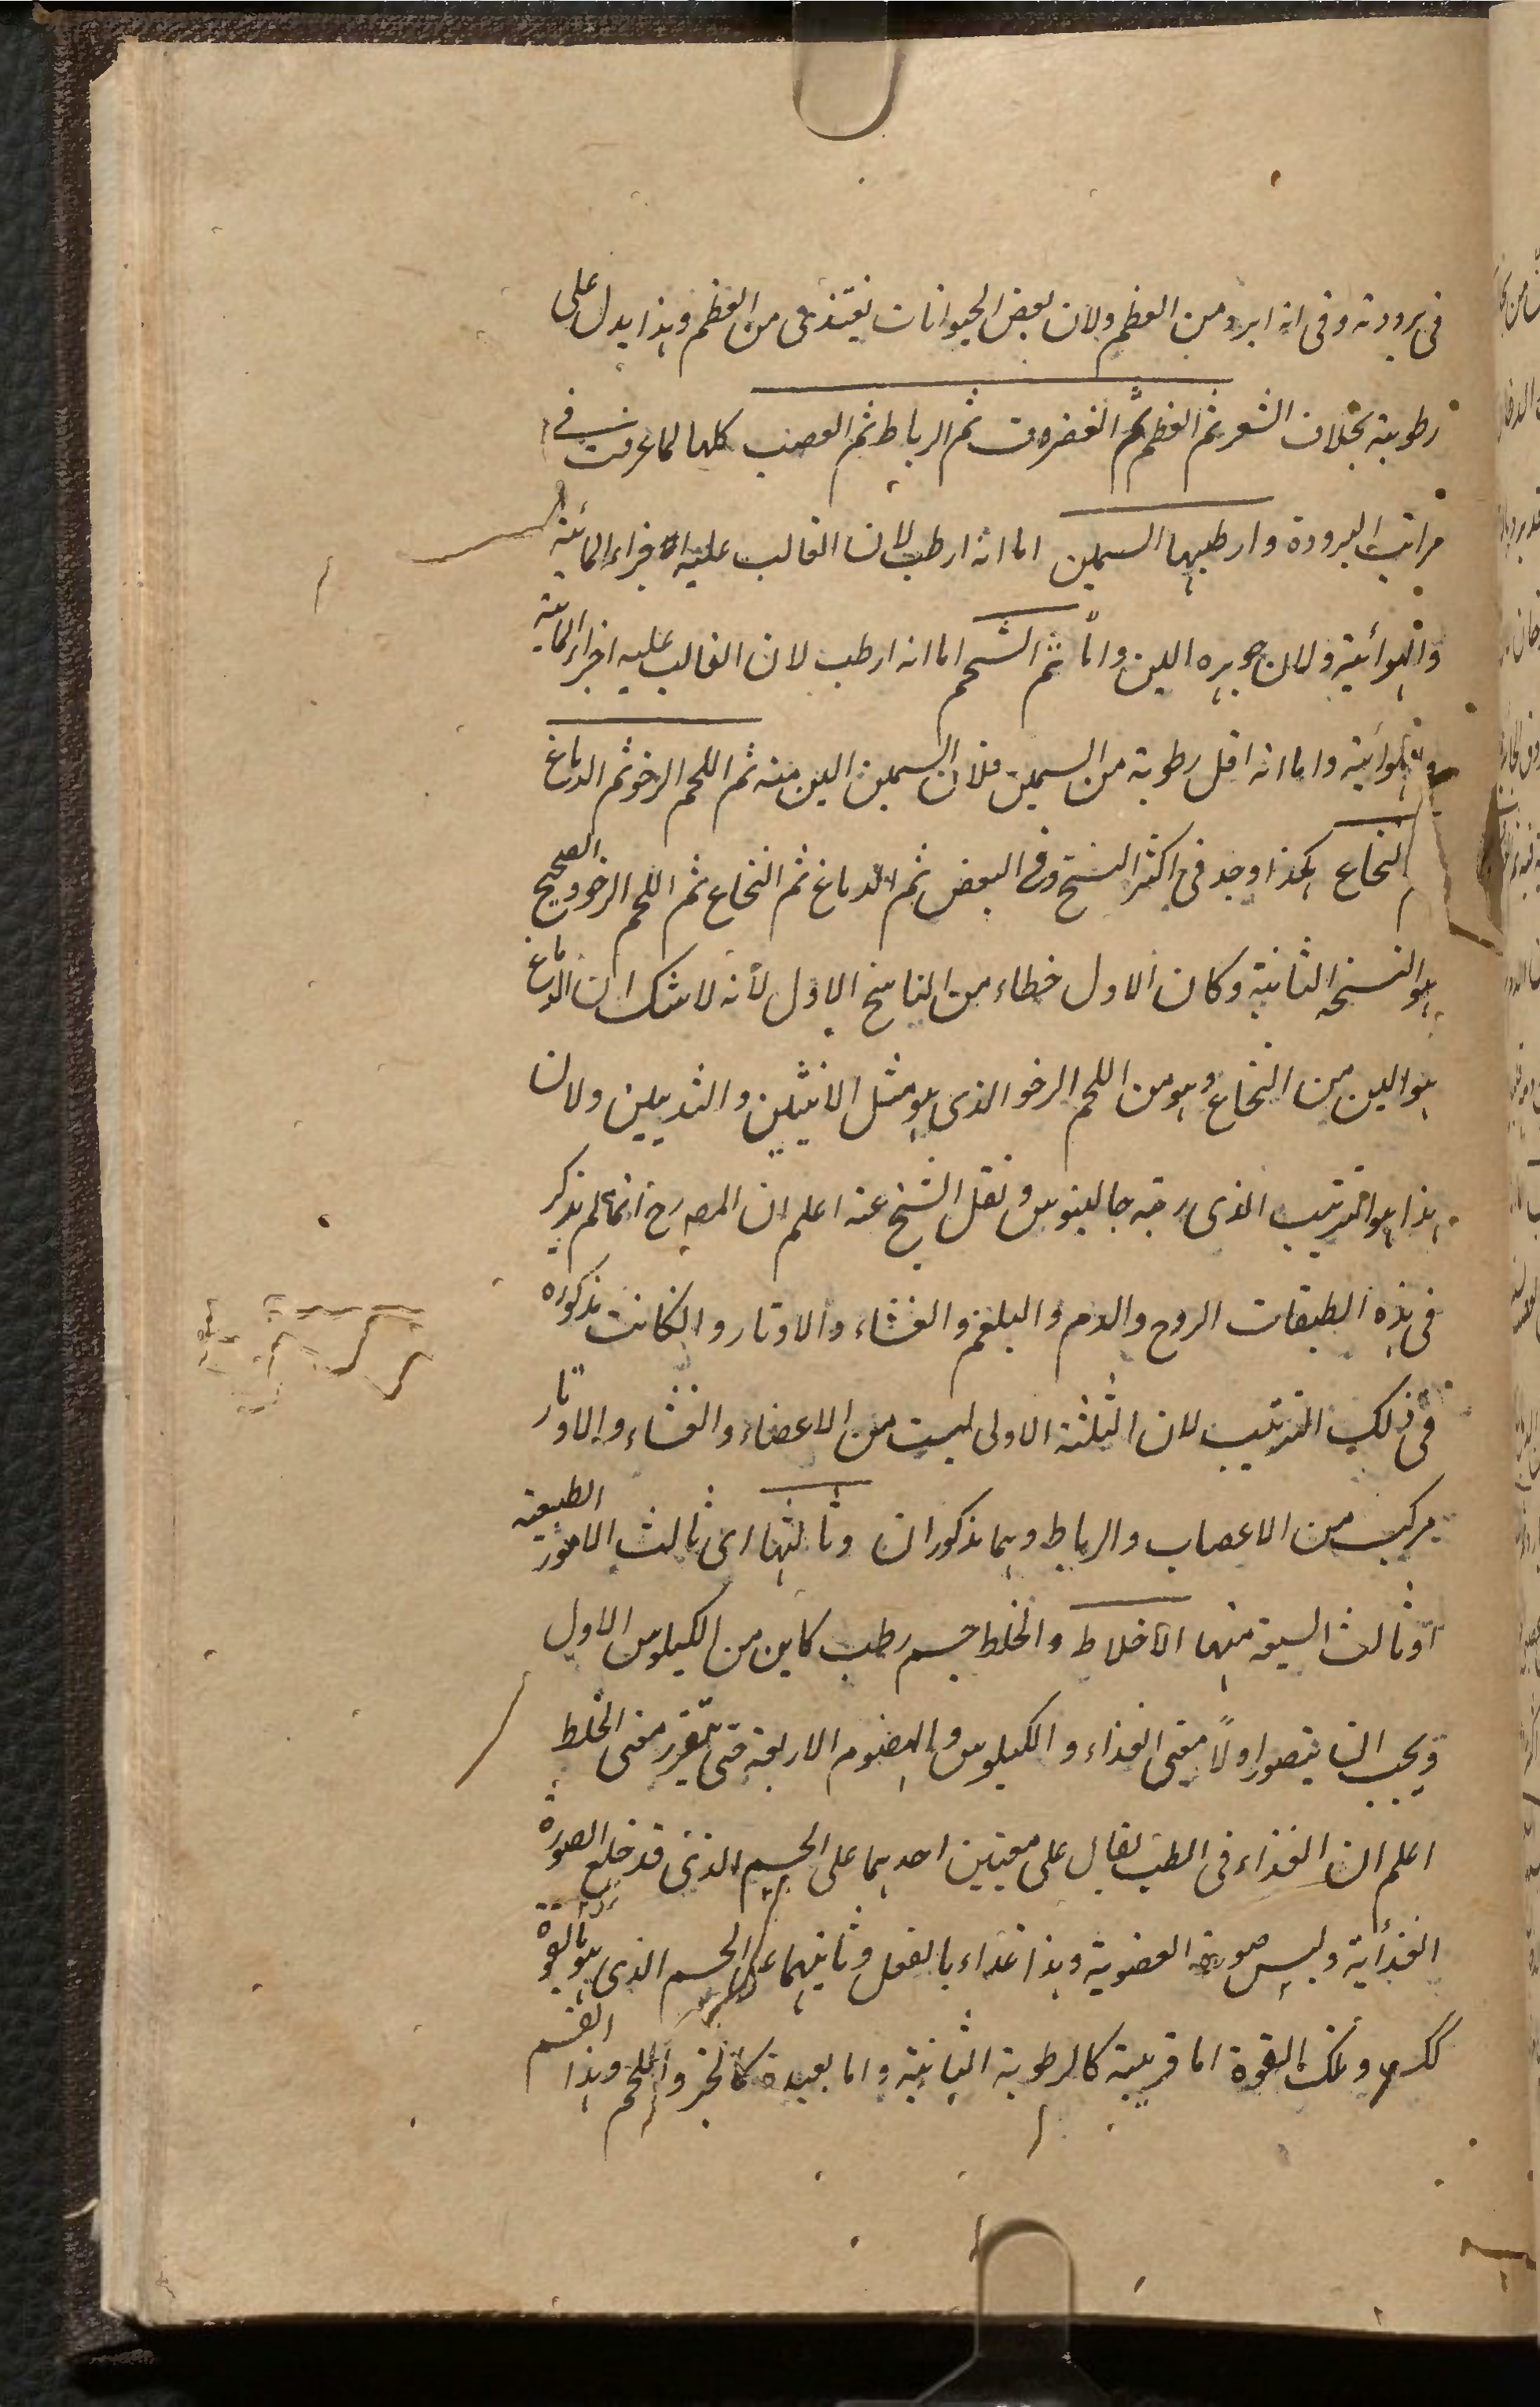 فى برودته وفى انه ابرد من العظم ولان بعض الحيوانات يغتذى من العظم وهذا يدل على
رطوبته بخلاف الشعر ثم العظم ثم الغضروف ثم الرباط ثم العصب كلها لما عرفت فى
مراتب البرودة وارطبها السمين اما انه ارطب لان الغالب عليه اجزاء المائية
والهوائية ولان جوهره الين واما ثم الشحم اما انه ارطب لان الغالب عليه اجزاء المائية
والهوائية واما انه اقل رطوبة من السمين فلان السمين الين منه ثم اللحم الرخو ثم الدماغ
ثم النخاع هكذا وجد فى اكثر النسخ وفى البعض ثم الدماغ ثم النخاع ثم اللحم الرخو والصحيح
هو النسخه الثانية وكان الاول خطاء من الناسخ الاول لأنه لا شك ان الدماغ
هو الين من النخاع وهو من اللحم الرخو الذى هو مثل الانثيين والثديين ولان
هذا هو الترتيب الذى رتبه جالينوس ونقل الشيخ عنه اعلم ان المصـ رح انما لم يذكر
فى هذه الطبقات الروح والدم والبلغم والغشاء والاوتار وان كانت مذكوره
فى ذلك الترتيب لان الثلثة الاولى ليست من الاعضاء والغشاء والاوتار
مركب من الاعصاب والرباط وهما مذكوران وثالثها اى ثالث الامور الطبيعية
او ثالث السبعة منها الاخلاط والخلط جسم رطب كاين من الكيلوس الاول
ويجب ان يتصور اولاً معنى الغذاء والكيلوس والهضوم الاربعة حتى يتقرر معنى الخلط
اعلم ان الغذاء فى الطب يقال على معنيين احدهما على الجسم الذى قد خلع الصورة
الغذأية ولبس صورة العضوية وهذا غذاء بالفعل وثانيهما على الجسم الذى هو بالقوة
كك وتلك القوة اما قريبة كالرطوبة الثانية واما بعيدة كالخبز واللحم وهذا القسم